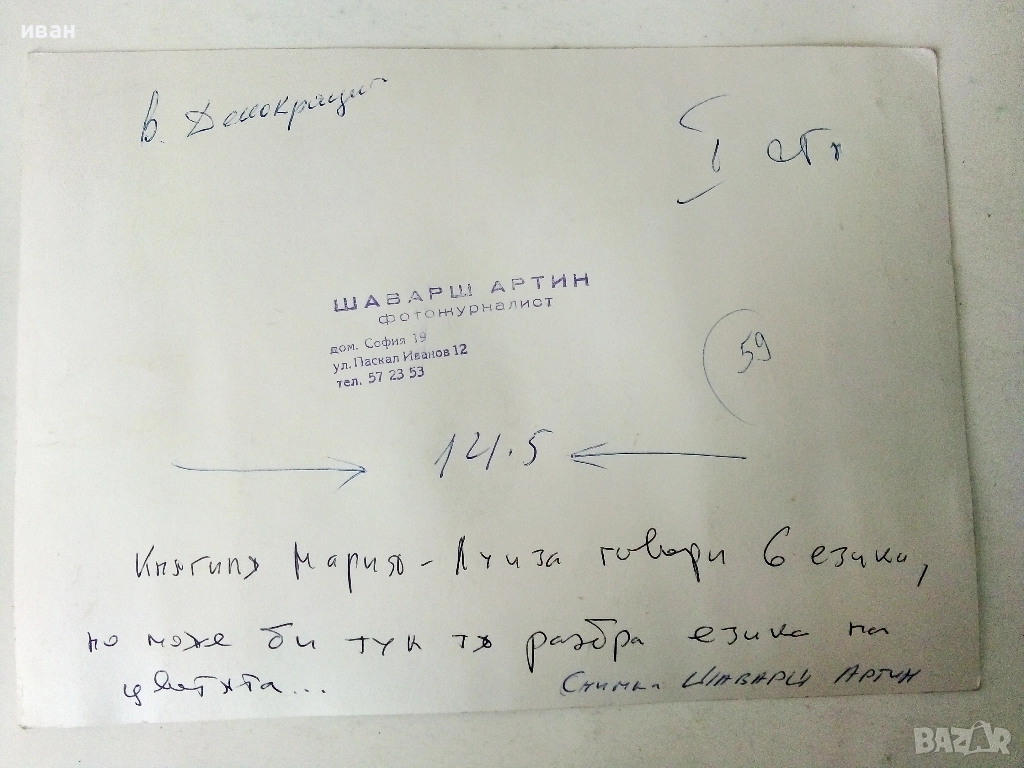 иван
в. Демокрация
I стр
ШАВАРШ АРТИН
фотожурналист
дом. София 19
ул. Паскал Иванов 12
тел. 57 23 53
59
14.5
Княгиня Мария-Луиза говори 6 езика,
но може би тук тя разбра езика на
цветята...
Снимка ШАВАРШ АРТИН
BAZAR